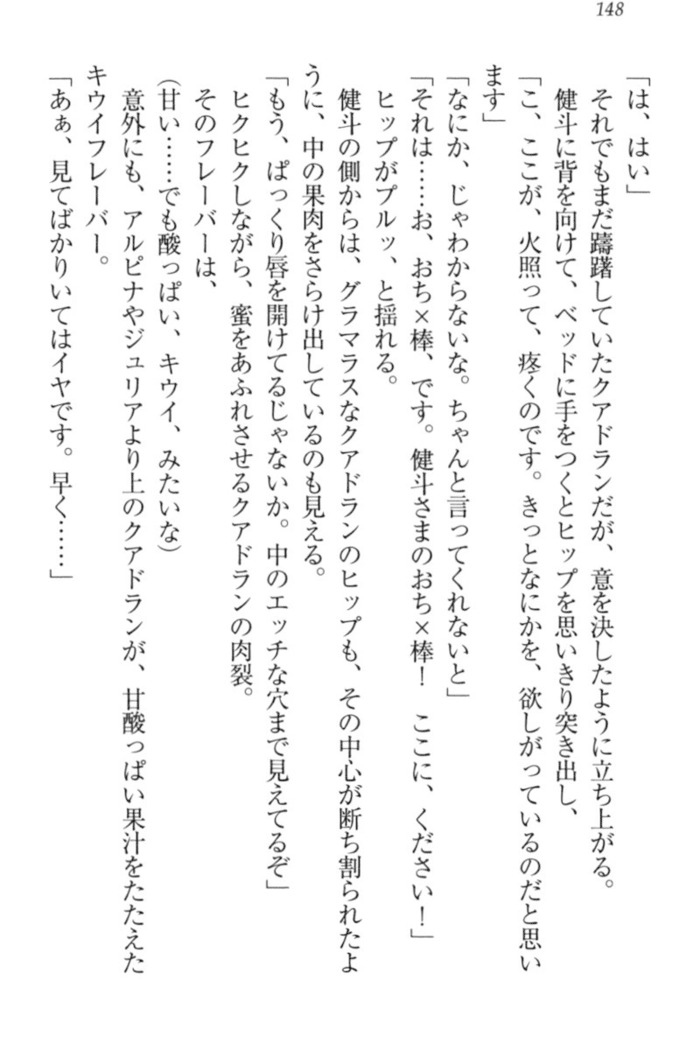 148
「は、はい」
それでもまだ躊躇していたクアドランだが、意を決したように立ち上がる。
健斗に背を向けて、ベッドに手をつくとヒップを思いきり突き出し、
「こ、ここが、火照って、疼くのです。きっとなにかを、欲しがっているのだと思い
ます」
「なにか、じゃわからないな。ちゃんと言ってくれないと」
「それは……お、おち×棒、です。健斗さまのおち×棒！　ここに、ください！」
ヒップがプルッ、と揺れる。
健斗の側からは、グラマラスなクアドランのヒップも、その中心が断ち割られたよ
うに、中の果肉をさらけ出しているのも見える。
「もう、ぱっくり唇を開けてるじゃないか。中のエッチな穴まで見えてるぞ」
ヒクヒクしながら、蜜をあふれさせるクアドランの肉裂。
そのフレーバーは、
(甘い……でも酸っぱい、キウイ、みたいな)
意外にも、アルピナやジュリアより上のクアドランが、甘酸っぱい果汁をたたえた
キウイフレーバー。
「あぁ、見てばかりいてはイヤです。早く……」